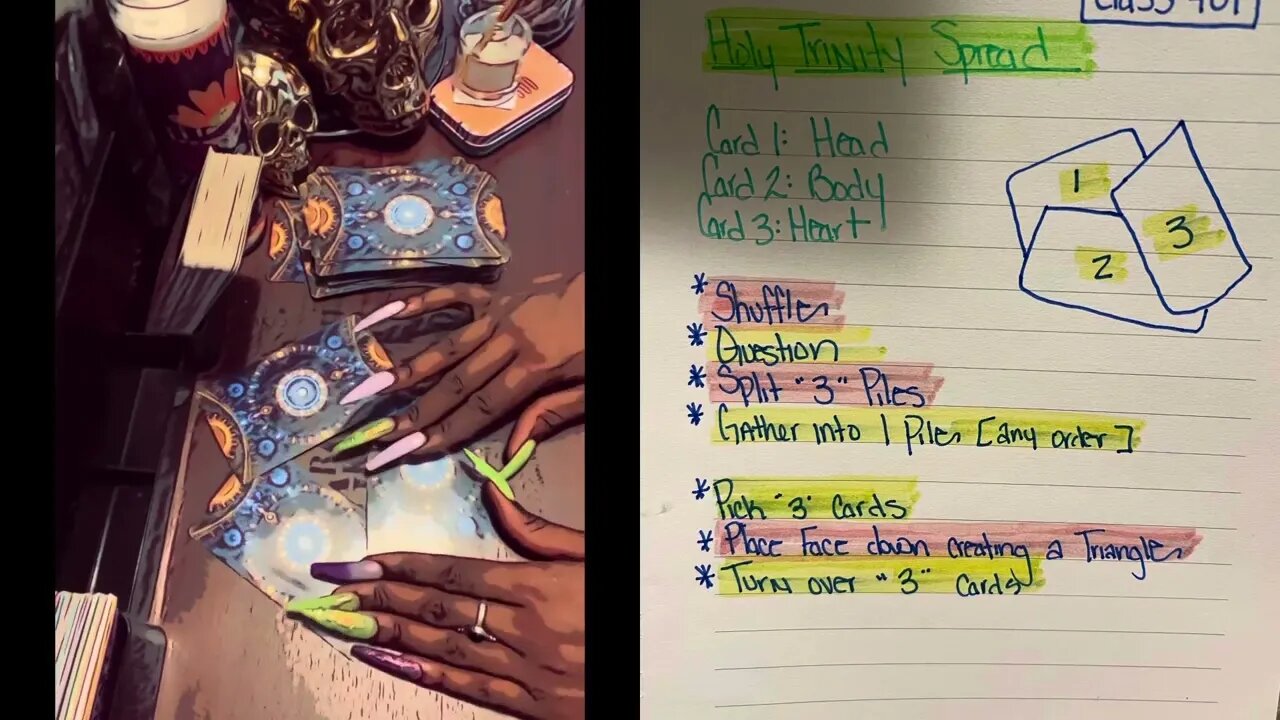 Class 401
Holy Trinity Spread
Card 1: Head
Card 2: Body
Card 3: Heart
1
2
3
* Shuffle
* Question
* Split "3" Piles
* Gather into 1 Pile [any order]
* Pick "3" Cards
* Place Face down creating a Triangle
* Turn over "3" Cards